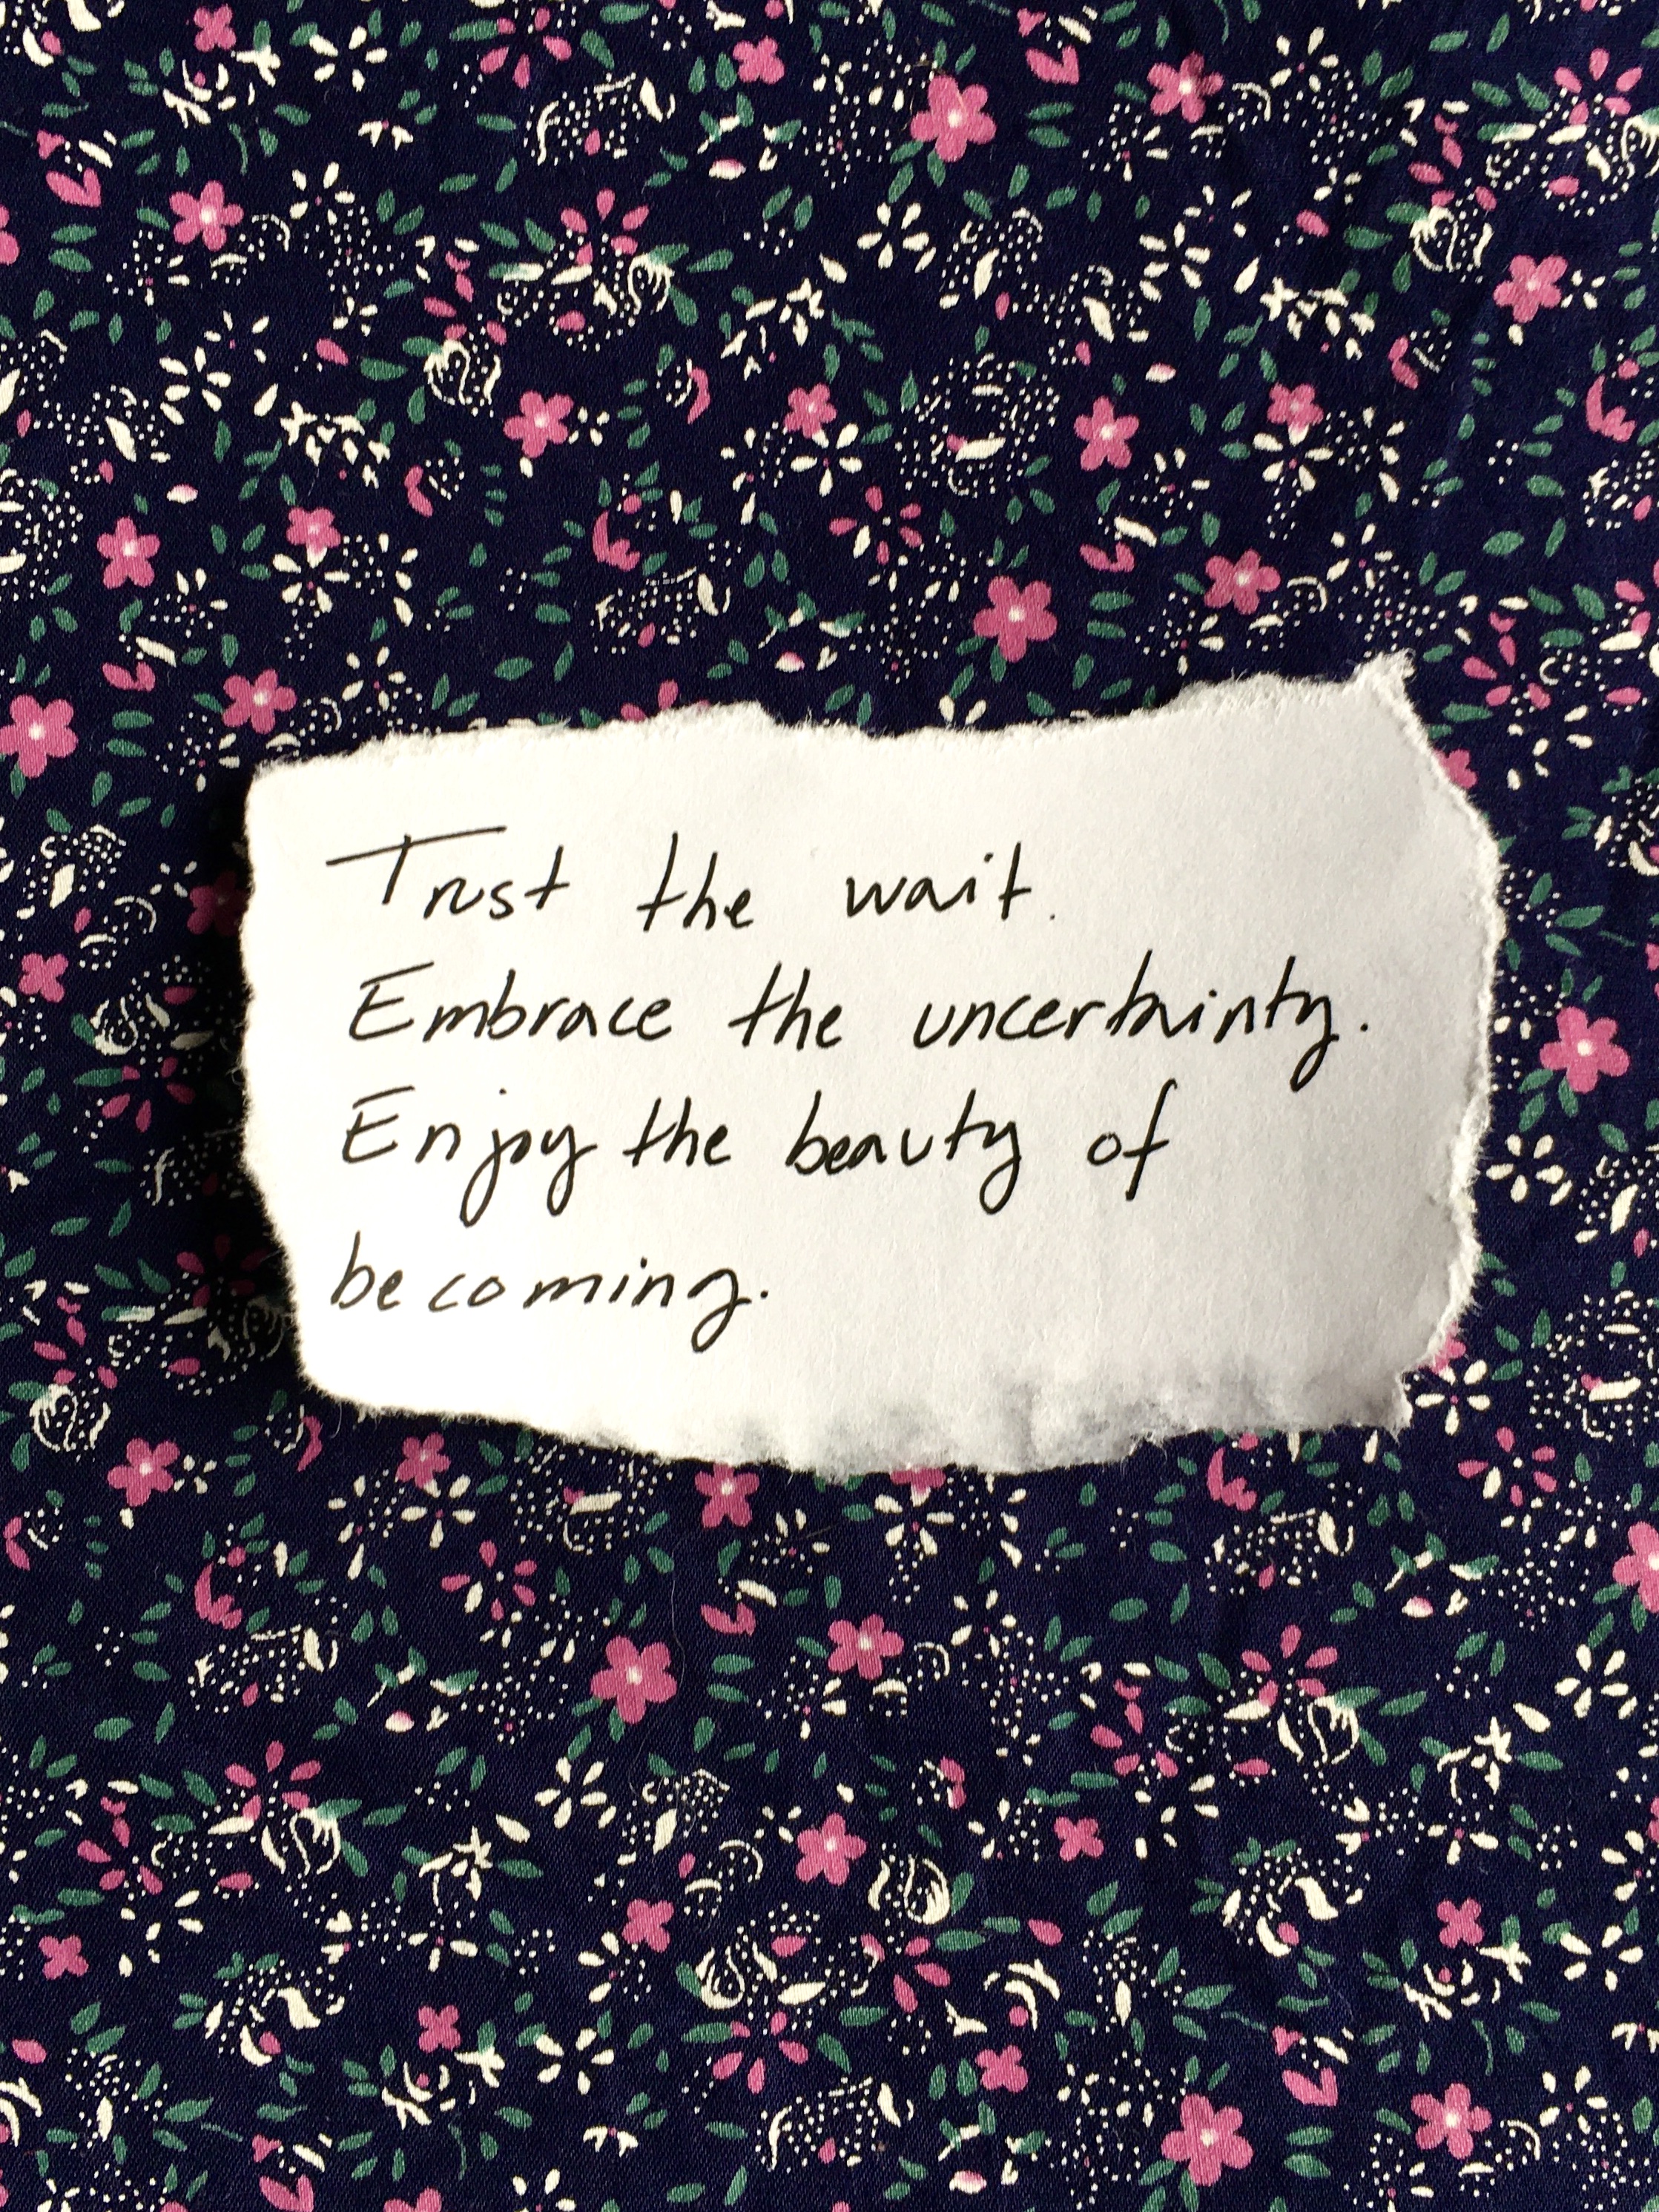 Trust the wait.
Embrace the uncertainty.
Enjoy the beauty of
becoming.